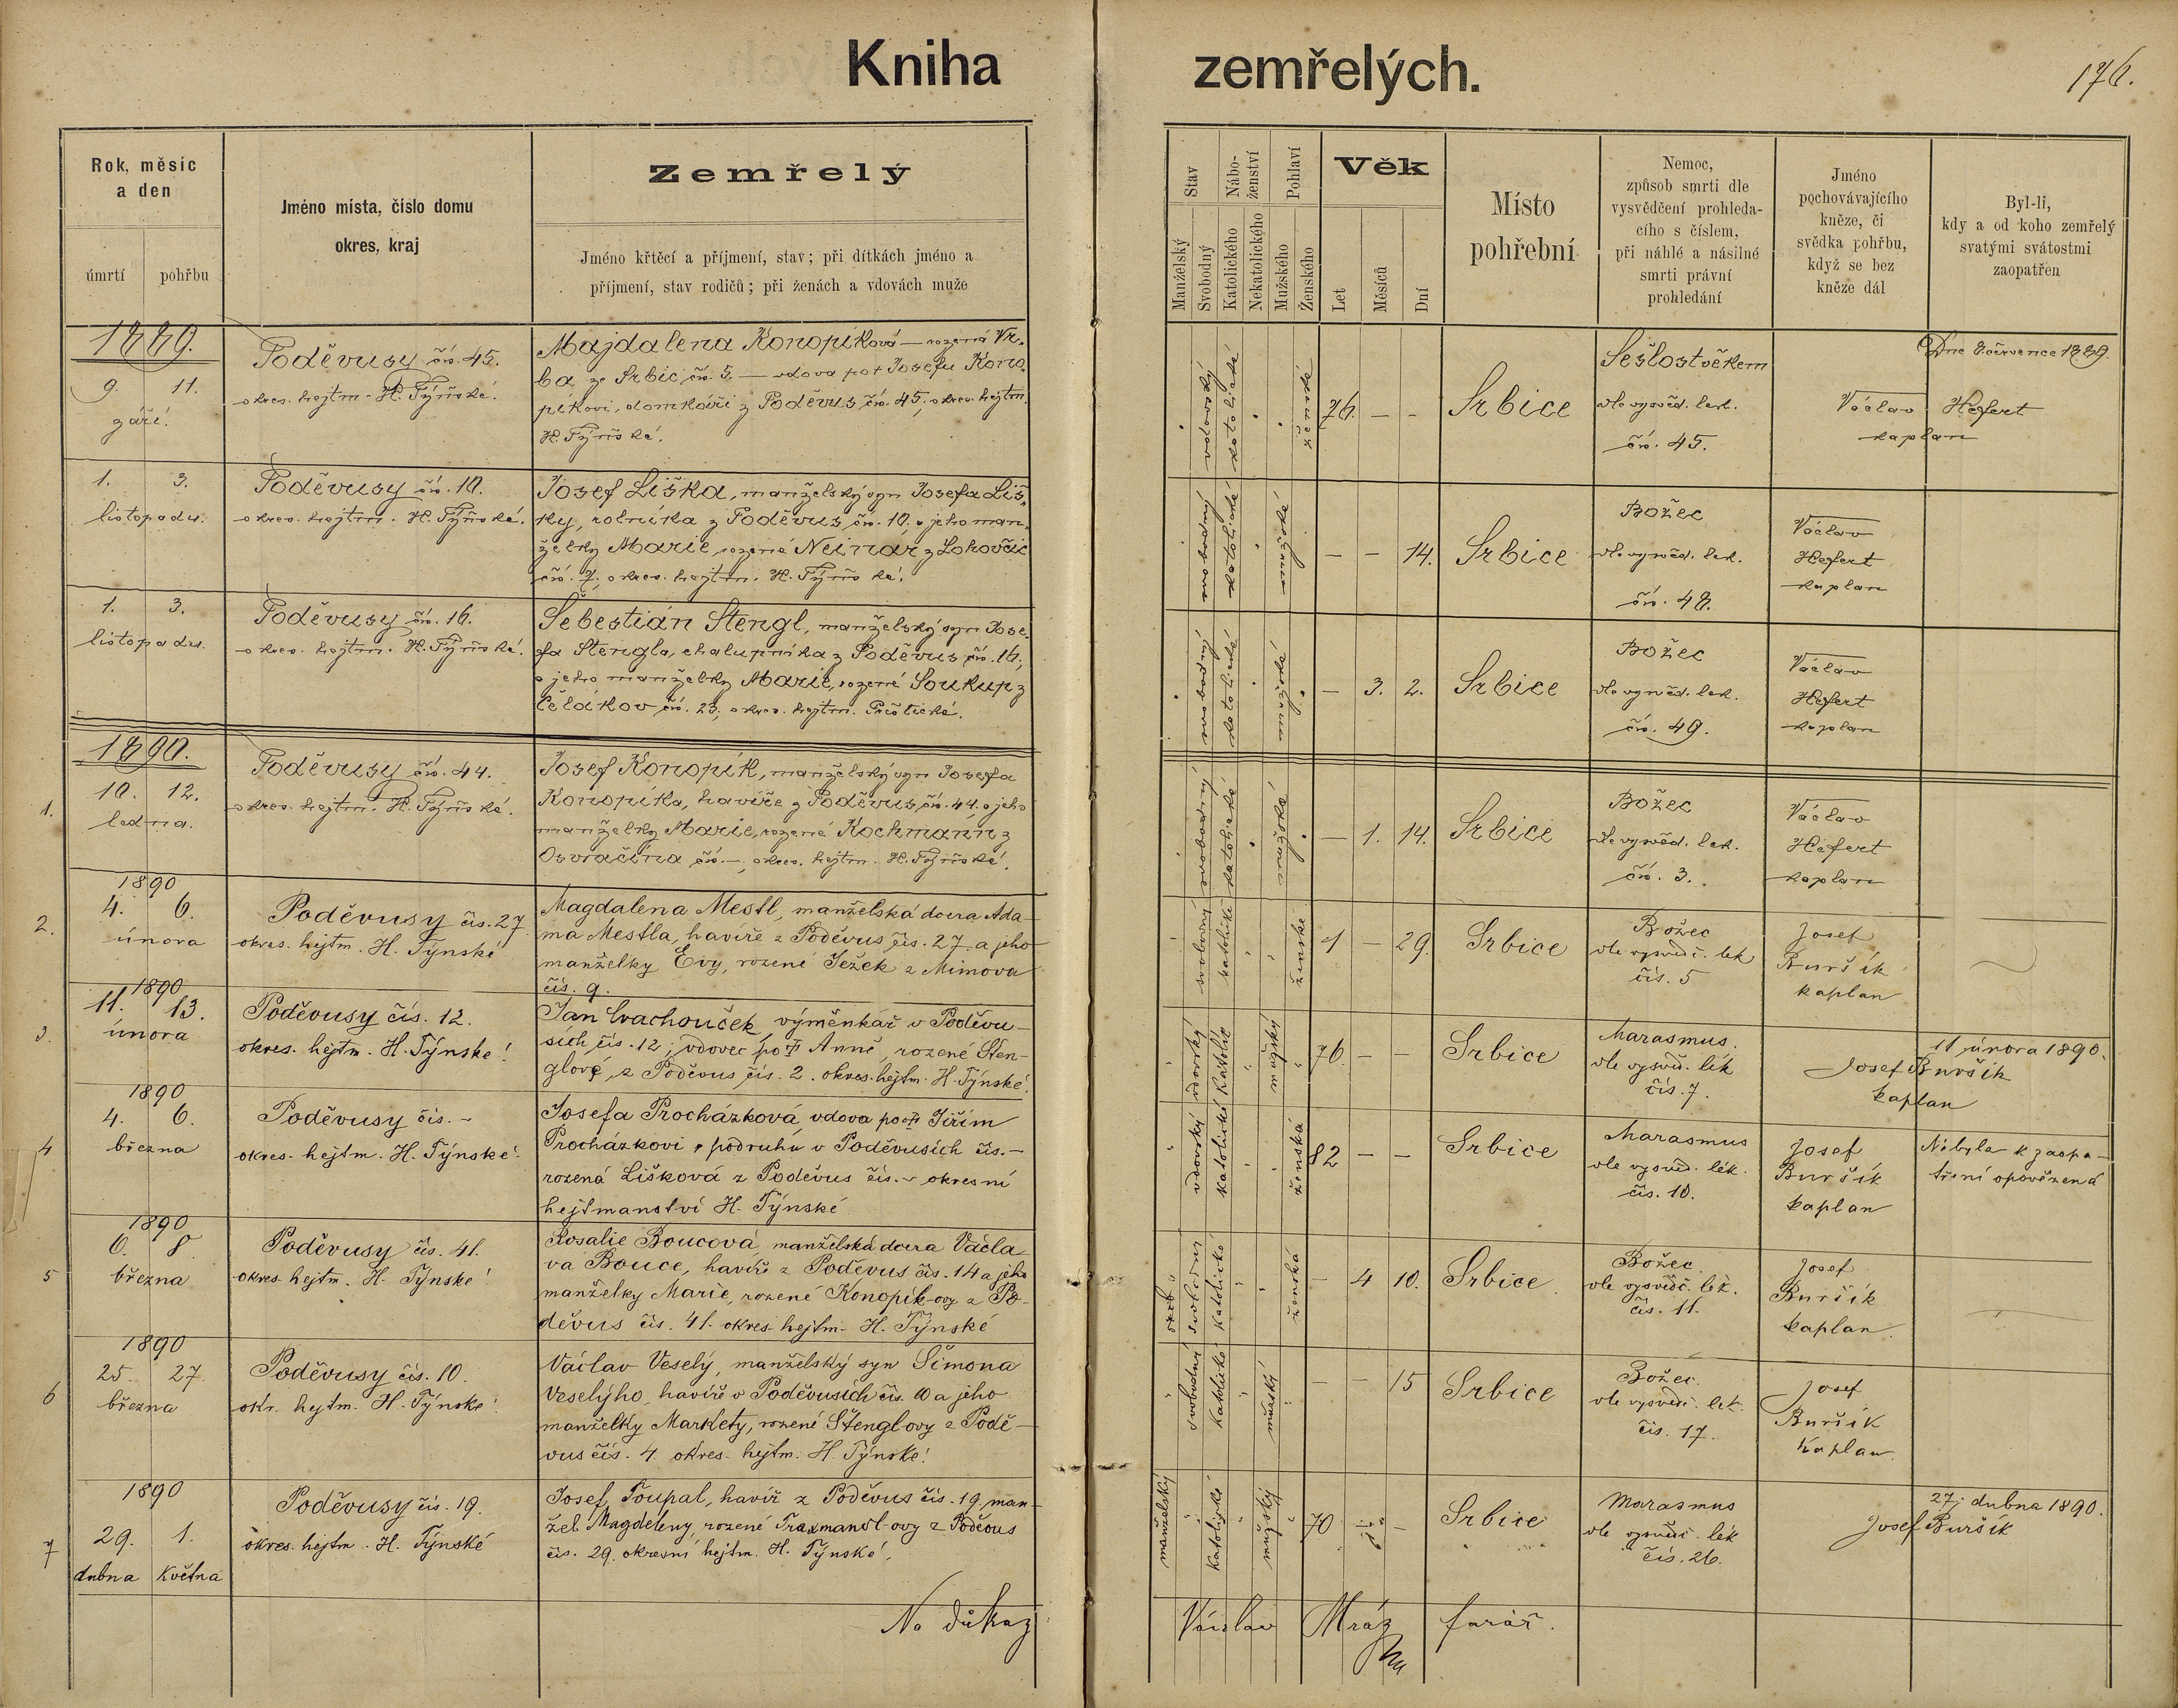 Kniha zemřelých.
176.
Rok, měsíc
a den
úmrtí
pohřbu
Jméno místa, číslo domu
okres, kraj
Zemřelý
Jméno křtěcí a příjmení, stav; při dítkách jméno a
příjmení, stav rodičů; při ženách a vdovách muže
Stav
Manželský
Svobodný
Nábo-
ženství
Katolického
Nekatolického
Pohlaví
Mužského
Ženského
Věk
Let
Měsíců
Dní
Místo
pohřební
Nemoc,
způsob smrti dle
vysvědčení prohleda-
cího s číslem,
při náhlé a násilné
smrti právní
prohledání
Jméno
pochovávajícího
kněze, či
svědka pohřbu,
když se bez
kněze dál
Byl-li,
kdy a od koho zemřelý
svatými svátostmi
zaopatřen
1889.
9. 11.
září.
Poděvusy čís. 45.
okres. hejtm. H. Týnské.
Majdalena Konopíková — rozená Vr-
ba ze Srbic čís. 5. — vdova po † Josefu Kono-
píkovi, domkáři z Poděvus čís. 45, okres. hejtm.
H. Týnské.
vdovský
katolické
ženské
76. — —
Srbice
Sešlost věkem
dle vysvěd. lek.
čís. 45.
Dne 8. července 1889.
Václav Hefert
kaplan
1. 3.
listopadu.
Poděvusy čís. 10.
okres. hejtm. H. Týnské.
Josef Liška, manželský syn Josefa Liš-
ky, rolníka z Poděvus čís. 10. a jeho man-
želky Marie, rozené Neinár z Lohovčic
čís. 7, okres. hejtm. H. Týnské.
svobodný
katolické
mužské
— — 14.
Srbice
Božec
dle vysvěd. lek.
čís. 48.
Václav
Hefert
kaplan
1. 3.
listopadu.
Poděvusy čís. 16.
okres. hejtm. H. Týnské.
Šebestián Stengl, manželský syn Jose-
fa Stengla, chalupníka z Poděvus čís. 16,
a jeho manželky Marie, rozené Soukup z
Čelákov čís. 23, okres. hejtm. Přeštické.
svobodný
katolické
mužské
— 3. 2.
Srbice
Božec
dle vysvěd. lek.
čís. 49.
Václav
Hefert
kaplan
1890.
1.
10. 12.
ledna.
Poděvusy čís. 44.
okres. hejtm. H. Týnské.
Josef Konopík, manželský syn Josefa
Konopíka, havíře z Poděvus čís. 44. a jeho
manželky Marie, rozené Kochmann z
Osvračína čís. —, okres. hejtm. H. Týnské.
svobodný
katolické
mužské
— 1. 14.
Srbice
Božec
dle vysvěd. lek.
čís. 3.
Václav
Hefert
kaplan
1890
2.
4. 6.
února
Poděvusy čís. 27
okres. hejtm. H. Týnské
Magdalena Mestl, manželská dcera Ada-
ma Mestla, havíře z Poděvus čís. 27. a jeho
manželky Evy, rozené Ježek z Mimova
čís. 9.
svobodný
katolické
ženské
1 — 29.
Srbice
Božec
dle vysvědč. lek
čís. 5
Josef
Buršík
kaplan
1890
3.
11. 13.
února
Poděvusy čís. 12.
okres. hejtm. H. Týnské
Jan Cvachouček, výměnkář v Poděvu-
sích čís. 12; vdovec po † Anně, rozené Sten-
glové, z Poděvus čís. 2. okres. hejtm. H. Týnské
vdovský
katolík
mužský
76 — —
Srbice
Marasmus
dle vysvěd. lék
čís. 7.
11. února 1890.
Josef Buršík
kaplan
1890
4
4. 6.
března
Poděvusy čís. -
okres. hejtm. H. Týnské
Josefa Procházková, vdova po † Jiřím
Procházkovi, podruhu v Poděvusích čís. -
rozená Lišková z Poděvus čís. - okresní
hejtmanství H. Týnské
vdovský
katolické
ženská
82 — —
Srbice
Marasmus
dle vysvěd. lék.
čís. 10.
Josef
Buršík
kaplan
Nebyla k zaopa-
tření opovězená
1890
5
6. 8.
března
Poděvusy čís. 41.
okres. hejtm. H. Týnské
Rosalie Boucová, manželská dcera Václa-
va Bouce, havíře z Poděvus čís. 14 a jeho
manželky Marie, rozené Konopík-ovy z Po-
děvus čís. 41. okres. hejtm. H. Týnské
katolické
ženská
— 4 10.
Srbice
Božec
dle vysvědč. lék.
čís. 11.
Josef
Buršík
kaplan
1890
6
25. 27.
března
Poděvusy čís. 10.
okr. hejtm. H. Týnské
Václav Veselý, manželský syn Šimona
Veselýho, havíře v Poděvusích čís. 10 a jeho
manželky Markéty, rozené Štenglovy z Podě-
vus čís. 4. okres. hejtm. H. Týnské
svobodný
katolické
mužský
— — 15
Srbice
Božec
dle vysvědč. lek.
čís. 17.
Josef
Buršík
kaplan
1890
7
29. 1.
dubna května
Poděvusy čís. 19.
okres. hejtm. H. Týnské
Josef Toupal, havíř z Poděvus čís. 19, man-
žel Magdeleny, rozené Traxmandl-ovy z Poděvus
čís. 29. okresní hejtm. H. Týnské.
manželský
katolické
mužský
70
Srbice
Marasmus
dle vysvědč. lék
čís. 26.
27. dubna 1890.
Josef Buršík
Na důkaz
Václav Mráz farář.